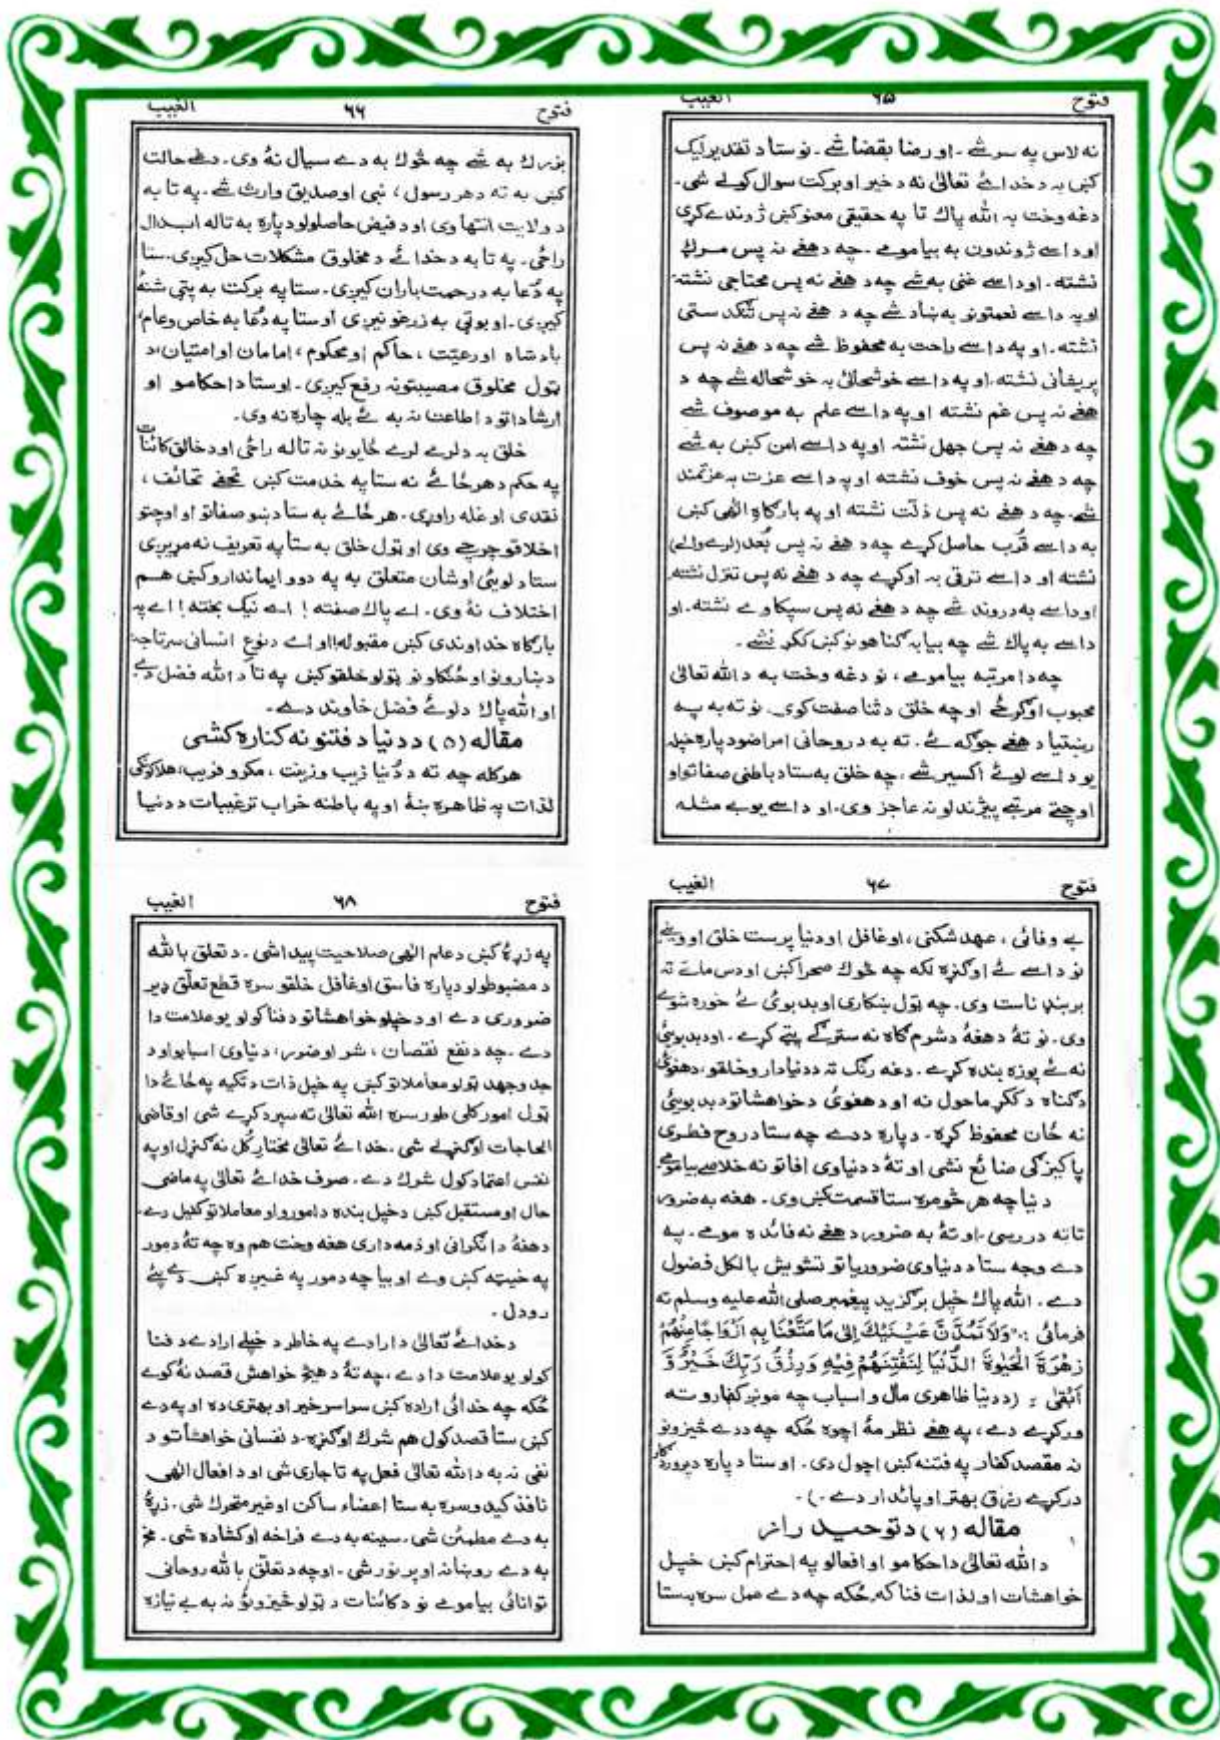 فتوح ۶۵ الغیب
نه لاس په سر شے ـ او رضا بقضا شے ـ نو ستا د تقدیر لیک
کښې به د خدائے تعالیٰ نه د خیر او برکت سوال کولے شی ـ
دغه وخت به الله پاک تا په حقیقی معنو کښې ژوندے کړی
او داسے ژوندون به بیا مومے ـ چه د هغے نه پس مرګ
نشته ـ او داسے غنی به شے چه د هغے نه پس محتاجی نشته
او په داسے نعمتونو به ښاد شے چه د هغے نه پس تنګدستی
نشته ـ او په داسے راحت به محفوظ شے چه د هغے نه پس
پریشانی نشته ـ او په داسے خوشحالئ به خوشحاله شے چه د
هغے نه پس غم نشته او په داسے علم به موصوف شے
چه د هغے نه پس جهل نشته او په داسے امن کښې به شے
چه د هغے نه پس خوف نشته او په داسے عزت به عزتمند
شے ـ چه د هغے نه پس ذلّت نشته او په بارګاهِ الٰهی کښې
به داسے قُرب حاصل کړے چه د هغے نه پس بُعد (لرے والے)
نشته او داسے ترقی به اوکړے چه د هغے نه پس تنزل نشته
او داسے به دروند شے چه د هغے نه پس سپکاوے نشته ـ او
داسے به پاک شے چه بیا به ګناهونو کښې ککړ نشے ـ
چه دا مرتبه بیا مومے ، نو دغه وخت به د الله تعالیٰ
محبوب اوګرځے او چه خلق د ثنا صفت کوی ـ نو ته به په
رښتیا د هغے جوګه ئے ـ ته به د روحانی امراضو دپاره خپله
یو داسے لوئے اکسیر شے ، چه خلق به ستا د باطنی صفاتو او
اوچتے مرتبے پیژندلو نه عاجز وی ـ او داسے یو بے مثله
فتوح ۶۶ الغیب
بزرګ به شے چه څوک به دے سیال نهٔ وی ـ دغے حالت
کښې به ته د هر رسول ، نبی او صدیق وارث شے ـ په تا به
د ولایت انتها وی او د فیض حاصلولو دپاره به تا له ابدال
راځی ـ په تا به د خدائے د مخلوق مشکلات حل کیږی ـ ستا
په دُعا به د رحمت باران کیږی ـ ستا په برکت به پټی شنهٔ
کیږی ـ او بوټی به زرغونیږی او ستا په دُعا به خاص و عام ،
بادشاه او رعیّت ، حاکم او محکوم ، امامان او امتیان او د
ټول مخلوق مصیبتونه رفع کیږی ـ او ستا د احکامو او
ارشاداتو د اطاعت نه به ئے بله چاره نه وی ـ
خلق به د لرے لرے ځایونو نه تا له راځی او د خالق کائنات
په حکم د هر ځائے نه ستا په خدمت کښې تحفے تحائف ،
نقدی او غله راوړی ـ هر ځائے به ستا د ښو صفاتو او اوچتو
اخلاقو چرچے وی او ټول خلق به ستا په تعریف نه مړیږی
ستا د لویئ او شان متعلق به په دوو ایماندارو کښې هم
اختلاف نهٔ وی ـ اے پاک صفته ! اے نیک بخته ! اے په
بارګاه خداوندی کښې مقبوله! او اے د نوعِ انسانی سرتاجه
د ښارونو او ځنګلونو ټولو خلقو کښې په تا د الله فضل دے
او الله پاک د لوئے فضل خاوند دے ـ
مقاله (۵) د دنیا د فتنو نه کناره کشی
هر کله چه ته د دُنیا زیب و زینت ، مکر و فریب ، هلاکونکی
لذات په ظاهره ښهٔ او په باطنه خراب ترغیبات د دنیا
فتوح ۶۷ الغیب
بے وفائی ، عهد شکنی ، او غافل او دنیا پرست خلق اووینے
نو داسے ئے اوګنړه لکه چه څوک صحرا کښې اودس ماتے ته
بربنډ ناست وی ـ چه ټول ښکاری او بدبوئی ئے خوره شوے
وی ـ نو تهٔ د هغهٔ د شرم ګاه نه سترګے پټے کړے ـ او د بدبویئ
نه ئے پوزه بنده کړے ـ دغه رنګ ته د دنیادارو خلقو ، د هغوئ
د ګناه د ککړ ماحول نه او د هغوئ د خواهشاتو د بدبویئ
نه ځان محفوظ کړه ـ دپاره ددے چه ستا د روح فطری
پاکیزګی ضائع نشی او تهٔ د دنیاوی افاتو نه خلاصے بیا مومے
دنیا چه هر څومره ستا قسمت کښې وی ـ هغه به ضرور
تا ته در رسی ـ او تهٔ به ضرور د هغے نه فائده مومے ـ په
دے وجه ستا د دنیاوی ضروریاتو تشویش بالکل فضول
دے ـ الله پاک خپل برګزید پیغمبر صلی الله علیه وسلم ته
فرمائی : "وَلَا تَمُدَّنَّ عَیْنَیْكَ اِلٰی مَا مَتَّعْنَا بِهٖ اَزْوَاجًا مِّنْهُمْ
زَهْرَةَ الْحَیٰوةِ الدُّنْیَا لِنَفْتِنَهُمْ فِیْهِ وَرِزْقُ رَبِّكَ خَیْرٌ وَّ
اَبْقٰی : (د دنیا ظاهری مال و اسباب چه مونږ کفارو ته
ورکړے دے ، په هغے نظر مهٔ اچوه ځکه چه د دے څیزونو
نه مقصد کفار په فتنه کښې اچول دی ـ او ستا دپاره د پروردګار
درکړے رزق بهتر او پائدار دے ـ) ـ
مقاله (۶) د توحید راز
د الله تعالیٰ د احکامو او افعالو په احترام کښې خپل
خواهشات او لذات فنا که ځکه چه دے عمل سره به ستا
فتوح ۶۸ الغیب
په زړهٔ کښې د علم الٰهی صلاحیت پیدا شی ـ د تعلق بالله
د مضبوطولو دپاره فاسق او غافل خلقو سره قطع تعلّق ډیر
ضروری دے او د خپلو خواهشاتو د فنا کولو یو علامت دا
دے ـ چه د نفع نقصان ، شر او ضرر ، دنیاوی اسبابو او د
جد و جهد ټولو معاملاتو کښې په خپل ذات د تکیه په ځائے دا
ټول امور کلی طور سره الله تعالیٰ ته سپرد کړے شی او قاضی
الحاجات اوګنړلے شی ـ خدائے تعالیٰ مختارِ کُل نه ګنړل او په
نفس اعتماد کول شرک دے ـ صرف خدائے تعالیٰ په ماضی
حال او مستقبل کښې د خپل بنده د امورو او معاملاتو کفیل دے ـ
د هغهٔ دا نګرانی او ذمه داری هغه وخت هم وه چه تهٔ د مور
په خیټه کښې وے او بیا چه د مور په غیږه کښې دے پئے
رودل ـ
د خدائے تعالیٰ د ارادے په خاطر د خپلے ارادے د فنا
کولو یو علامت دا دے ، چه تهٔ د هیڅ خواهش قصد نهٔ کوے
ځکه چه خدائی اراده کښې سراسر خیر او بهتری ده او په دے
کښې ستا قصد کول هم شرک اوګنړه ـ د نفسانی خواهشاتو د
نفی نه به د الله تعالیٰ فعل په تا جاری شی او د افعال الٰهی
نافذ کیدو سره به ستا اعضاء ساکن او غیر متحرک شی ـ زړهٔ
به دے مطمئن شی ـ سینه به دے فراخه او کشاده شی ـ مخ
به دے روښانه او پر نور شی ـ او چه د تعلّق بالله روحانی
توانائی بیا مومے نو د کائنات د ټولو څیزونو نه به بے نیازه